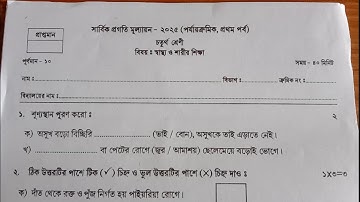 প্রাপ্তমান
সার্বিক প্রগতি মূল্যায়ন - ২০২৫ (পর্যায়ক্রমিক, প্রথম পর্ব)
চতুর্থ শ্রেণী
বিষয় : স্বাস্থ্য ও শারীর শিক্ষা
পূর্ণমান - ১০
সময় - ৪০ মিনিট
নাম : বিভাগ : ক্রমিক নং :
বিদ্যালয়ের নাম :
১. শূণ্যস্থান পুরণ করো : ২
ক) অসুখ বড়ো বিচ্ছিরি (ভাই / বোন), অসুখকে তাই এড়াতে নেই।
খ) বা পেটের রোগে (জ্বর / আমাশয়) ছেলেমেয়ে বড়োই ভোগে।
২. ঠিক উত্তরটির পাশে টিক (✓) চিহ্ন ও ভুল উত্তরটির পাশে (✗) চিহ্ন দাও : ১x৩=৩
ক) দাঁত থেকে রক্ত ও পুঁজ নির্গত হয় পাইয়রিয়া রোগে।